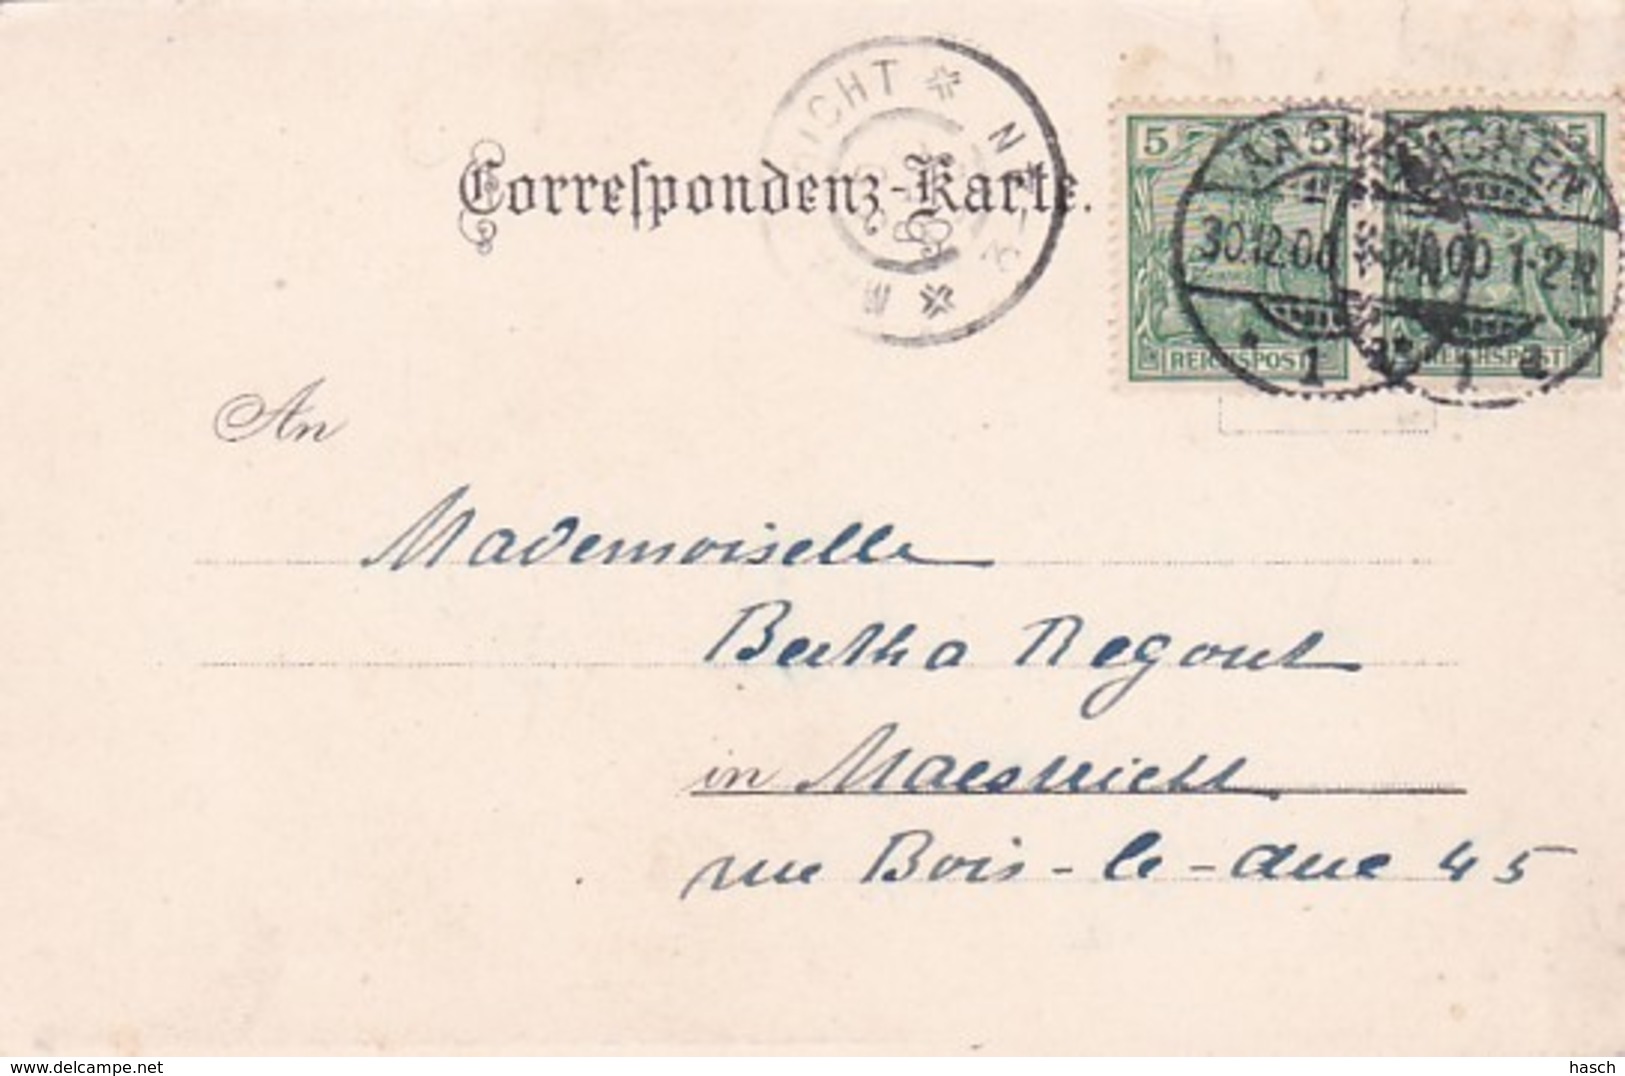 Correspondenz-Karte.
5 5
5
AACHEN
AACHEN
30.12.00
00 1-2 N
1
1 a
REICHSPOST
REICHSPOST
An
Mademoiselle
Bertha Regout
in Maestricht
rue Bois-le-duc 45
delcampe.net
hasch